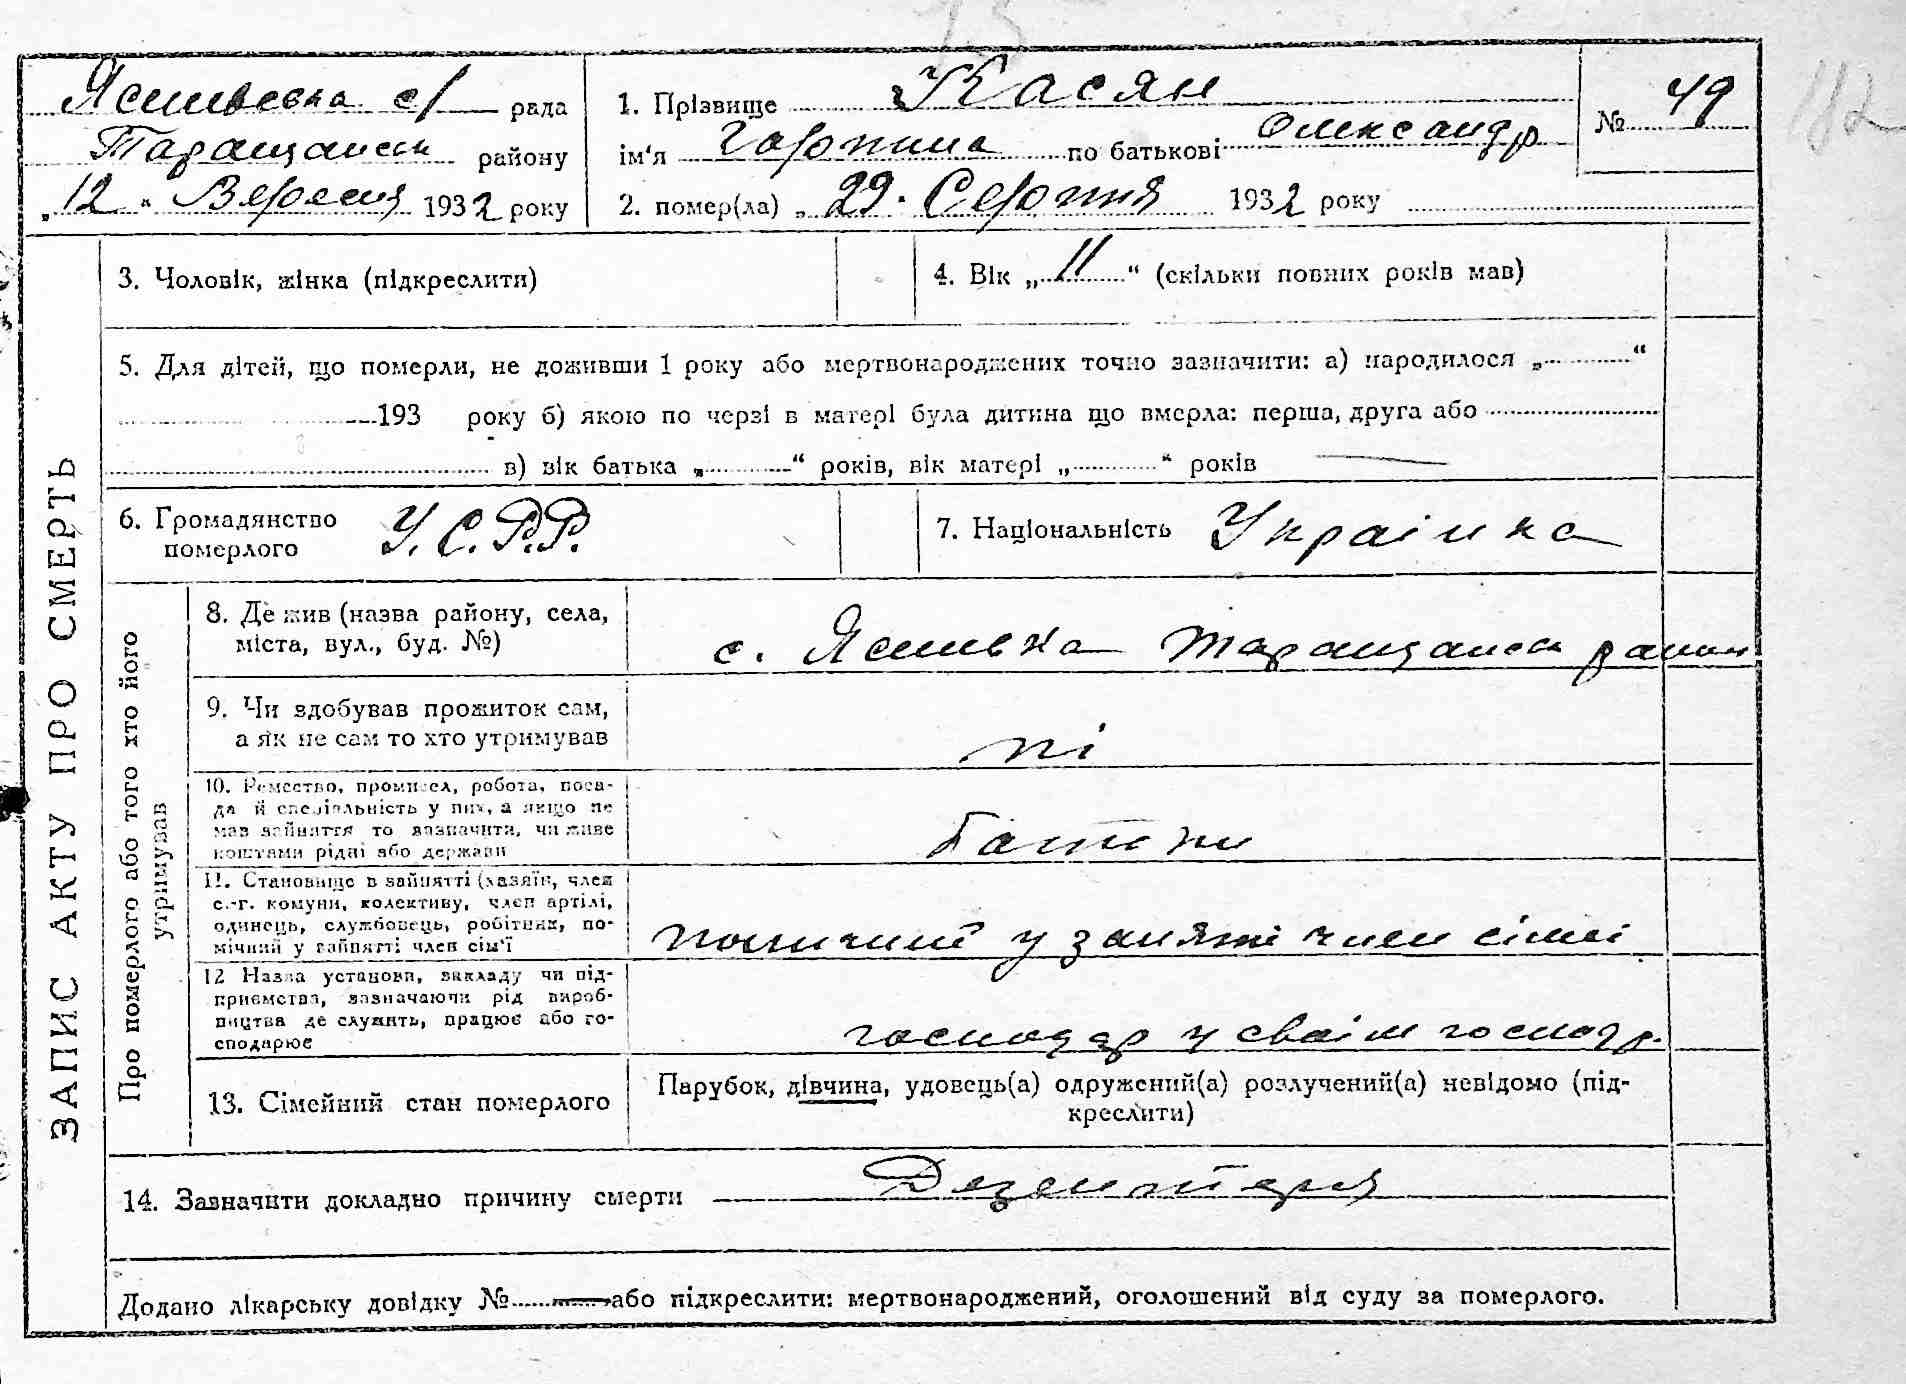 182
Ясинівська с/ рада
Таращанськ району
„12“ Вересня 1932 року
1. Прізвище Касян
ім'я Гарпина по батькові Олександр
2. помер(ла) „29. Серпня 1932 року
№ 49
ЗАПИС АКТУ ПРО СМЕРТЬ
3. Чоловік, жінка (підкреслити)
4. Вік „11“ (скільки повних років мав)
5. Для дітей, що померли, не доживши 1 року або мертвонароджених точно зазначити: а) народилося „ “
193 року б) якою по черзі в матері була дитина що вмерла: перша, друга або
в) вік батька „ “ років, вік матері „ “ років
6. Громадянство
померлого
У.С.Р.Р.
7. Національність Украінка
Про померлого або того хто його
утримував
8. Де жив (назва району, села,
міста, вул., буд. №)
с. Ясинівка Таращанськ район
9. Чи здобував прожиток сам,
а як не сам то хто утримував
ні
10. Ремество, промисел, робота, поса-
да й спеціяльність у них, а якщо не
мав зайняття то зазначити, чи живе
коштами рідні або держави
Батьки
11. Становище в зайнятті (хазяїн, член
с.-г. комуни, колективу, член артілі,
одинець, службовець, робітник, по-
мічний у зайнятті член сім'ї
помічний у заняті член сімьі
12 Назва установи, закладу чи під-
приємства, зазначаючи рід вироб-
ництва де служить, працює або го-
сподарює
господар у своім господр.
13. Сімейний стан померлого
Парубок, дівчина, удовець(а) одружений(а) розлучений(а) невідомо (під-
креслити)
14. Зазначити докладно причину смерти Дезентерія
Додано лікарську довідку № або підкреслити: мертвонароджений, оголошений від суду за померлого.